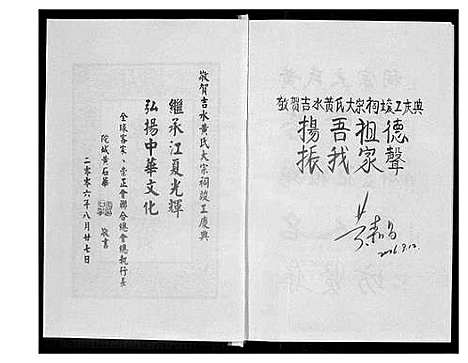 敬贺吉水黄氏大宗祠竣工庆典
揚吾祖德
振我家聲
敬賀吉水黄氏大宗祠竣工慶典
繼承江夏光輝
弘揚中華文化
全球客家、崇正會聯合總會總執行長
黄石華
敬書
二零零六年八月廿七日